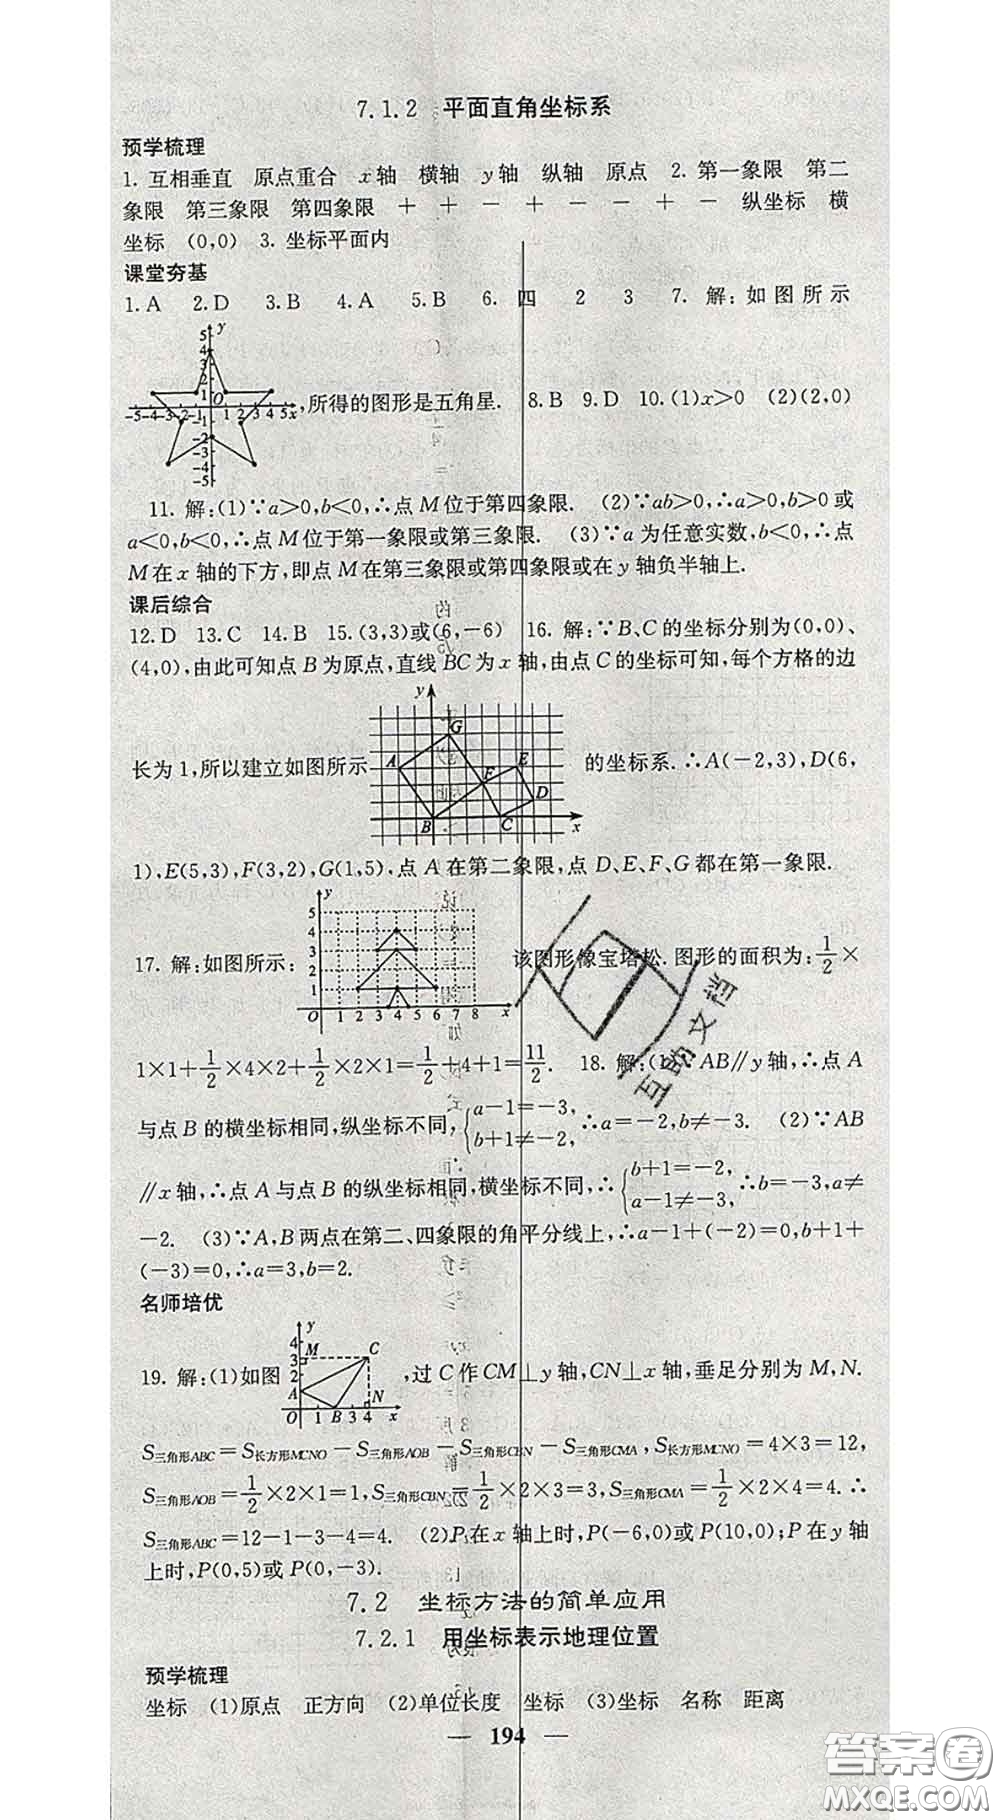 7.1.2 平面直角坐标系
预学梳理
1. 互相垂直 原点重合 x轴 横轴 y轴 纵轴 原点 2. 第一象限 第二
象限 第三象限 第四象限 + + - + - - + - 纵坐标 横
坐标 (0,0) 3. 坐标平面内
课堂夯基
1. A 2. D 3. B 4. A 5. B 6. 四 2 3 7. 解:如图所示
,所得的图形是五角星. 8. B 9. D 10. (1)x>0 (2)(2,0)
11. 解:(1)∵a>0,b<0,∴点M位于第四象限. (2)∵ab>0,∴a>0,b>0或
a<0,b<0,∴点M位于第一象限或第三象限. (3)∵a为任意实数,b<0,∴点
M在x轴的下方,即点M在第三象限或第四象限或在y轴负半轴上.
课后综合
12. D 13. C 14. B 15. (3,3)或(6,-6) 16. 解:∵B、C的坐标分别为(0,0)、
(4,0),由此可知点B为原点,直线BC为x轴,由点C的坐标可知,每个方格的边
长为1,所以建立如图所示 y G A E F D B C x 的坐标系.∴A(-2,3),D(6,
1),E(5,3),F(3,2),G(1,5),点A在第二象限,点D、E、F、G都在第一象限.
17. 解:如图所示: 该图形像宝塔松. 图形的面积为:1/2×
1×1+1/2×4×2+1/2×2×1=1/2+4+1=11/2. 18. 解:(1)∵AB∥y轴,∴点A
与点B的横坐标相同,纵坐标不同,{a-1=-3, b+1≠-2, ∴a=-2,b≠-3. (2)∵AB
∥x轴,∴点A与点B的纵坐标相同,横坐标不同,∴{b+1=-2, a-1≠-3, ∴b=-3,a≠
-2. (3)∵A,B两点在第二、四象限的角平分线上,∴a-1+(-2)=0,b+1+
(-3)=0,∴a=3,b=2.
名师培优
19. 解:(1)如图 ,过C作CM⊥y轴,CN⊥x轴,垂足分别为M,N.
S三角形ABC=S长方形MCNO-S三角形AOB-S三角形CBN-S三角形CMA,S长方形MCNO=4×3=12,
S三角形AOB=1/2×2×1=1,S三角形CBN=1/2×2×3=3,S三角形CMA=1/2×2×4=4.∴
S三角形ABC=12-1-3-4=4. (2)P在x轴上时,P(-6,0)或P(10,0);P在y轴
上时,P(0,5)或P(0,-3).
7.2 坐标方法的简单应用
7.2.1 用坐标表示地理位置
预学梳理
坐标 (1)原点 正方向 (2)单位长度 坐标 (3)坐标 名称 距离
— 194 —
互助文档
答案圈
MXQE.COM